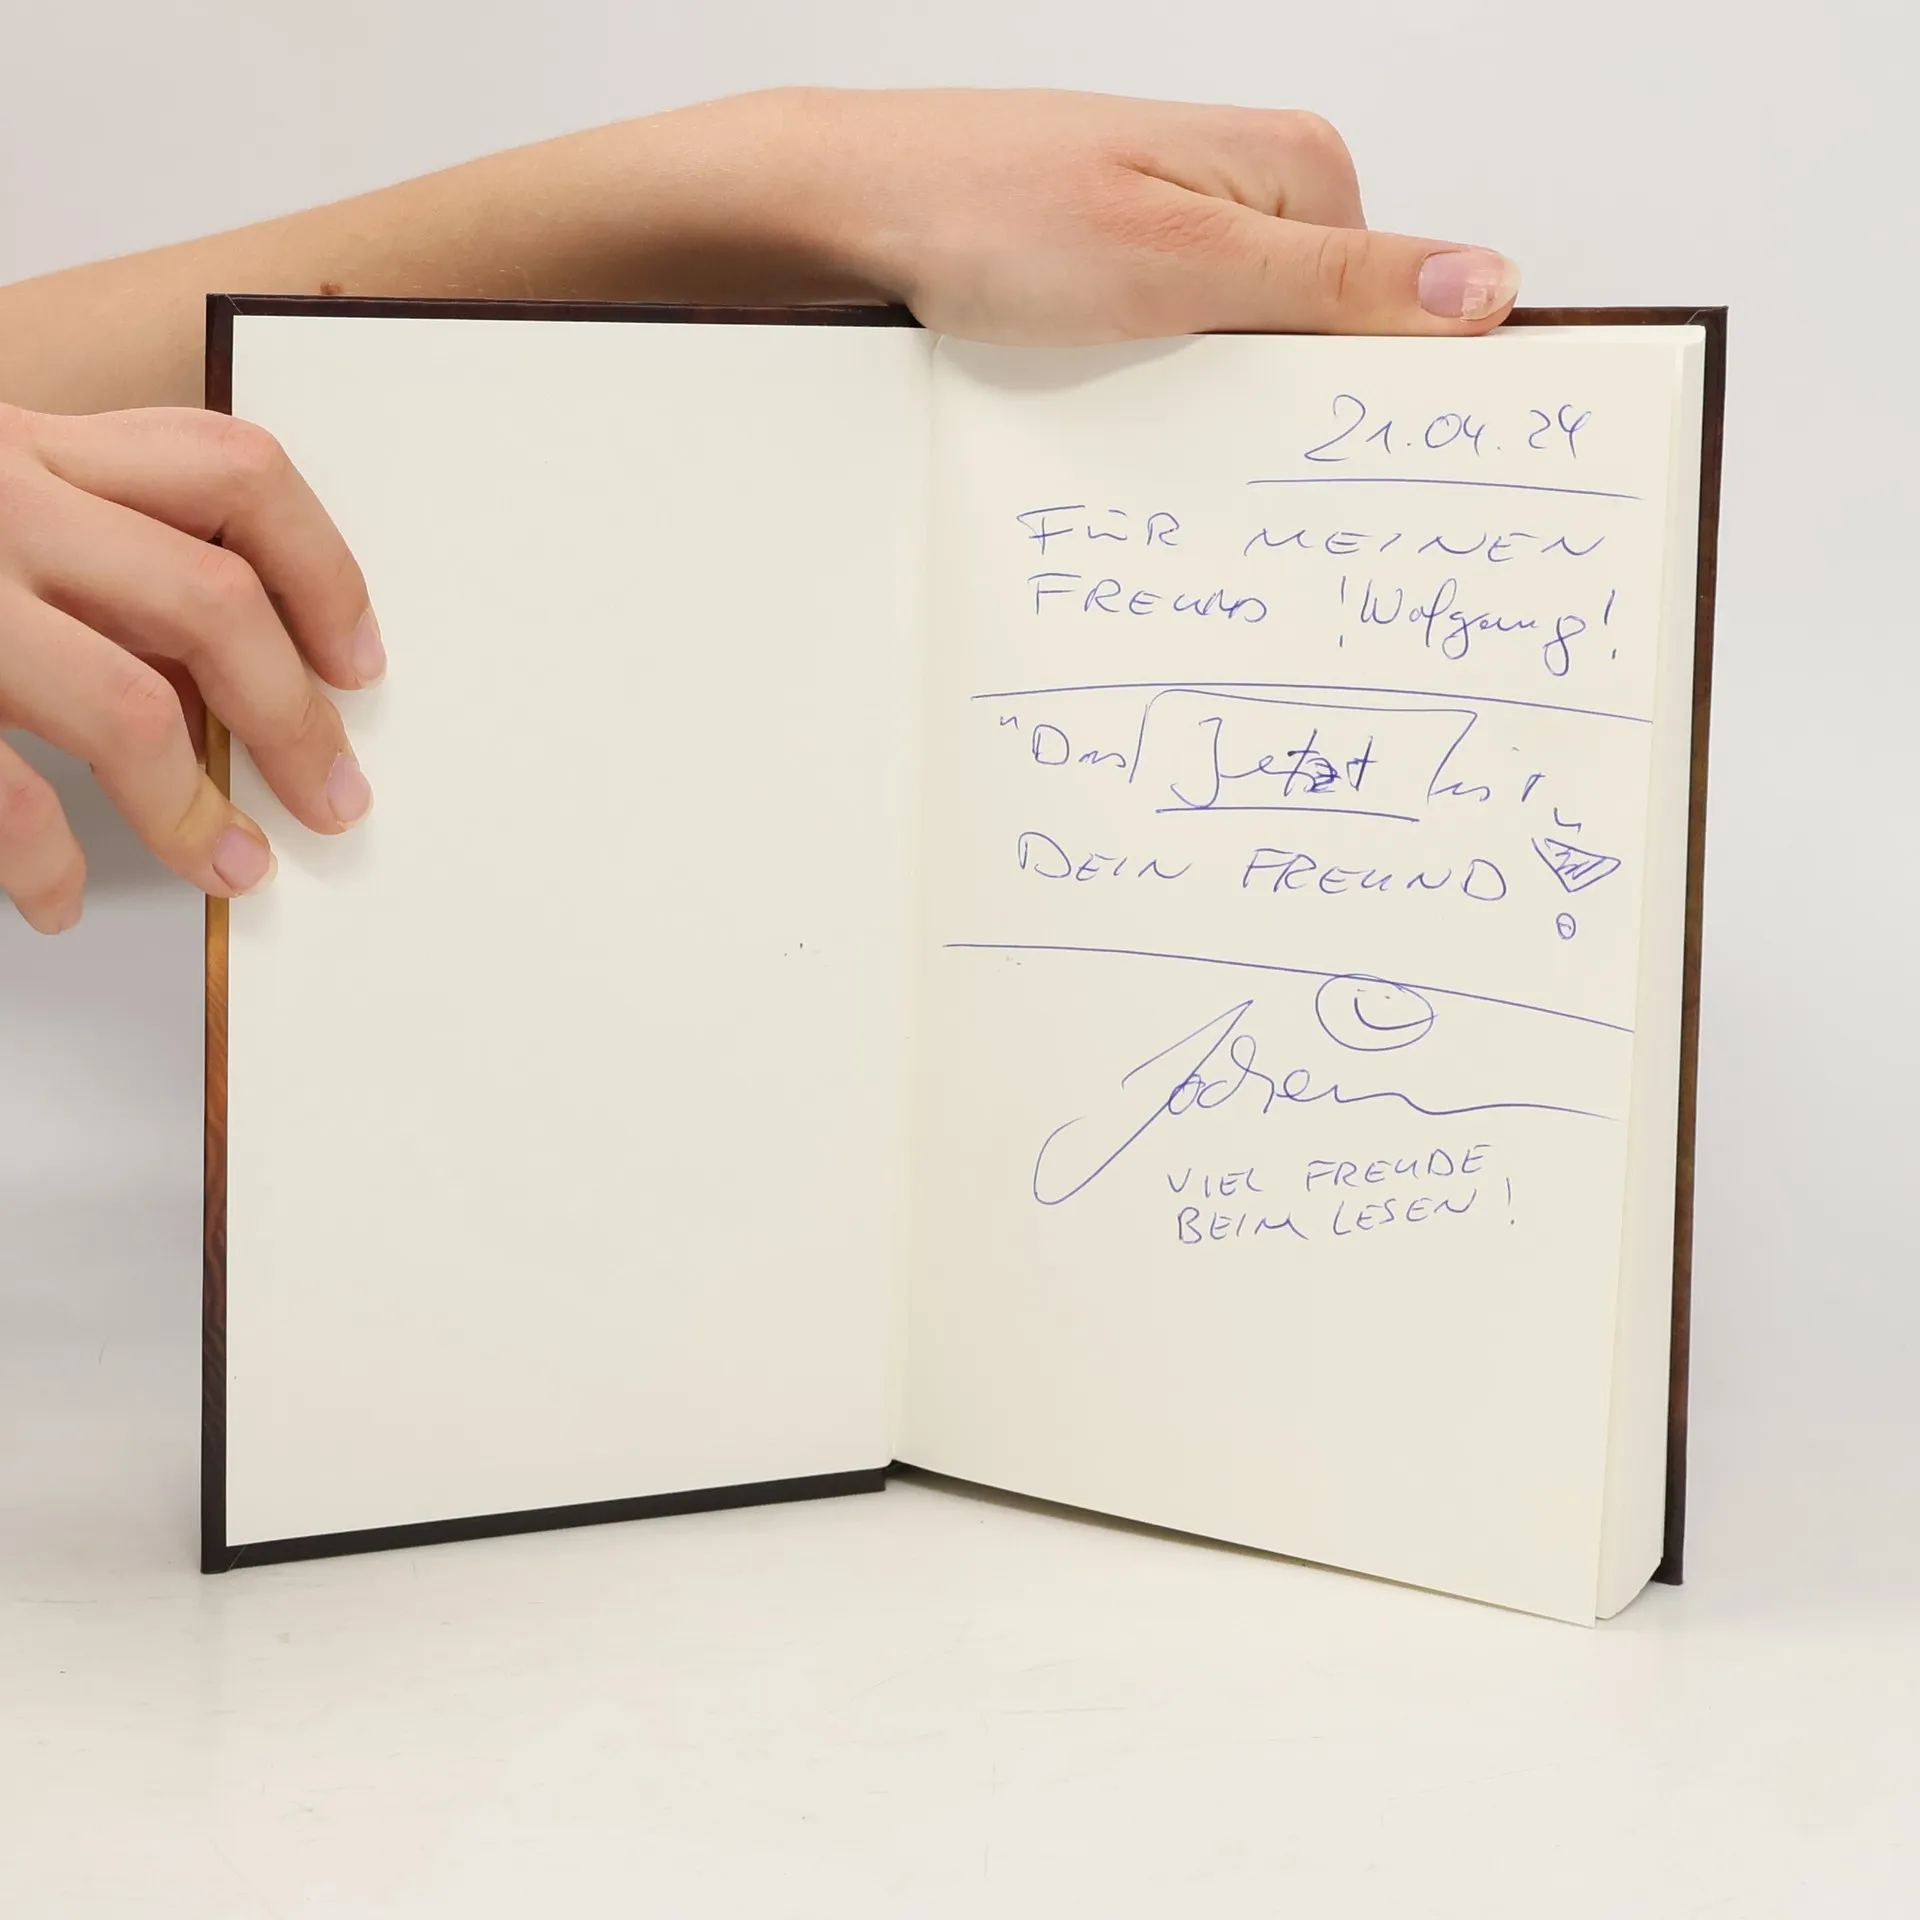 21.04.24
FÜR MEINEN
FREUND !Wolfgang!
"Das Jetzt ist
DEIN FREUND"!
Jochen
VIEL FREUDE
BEIM LESEN!